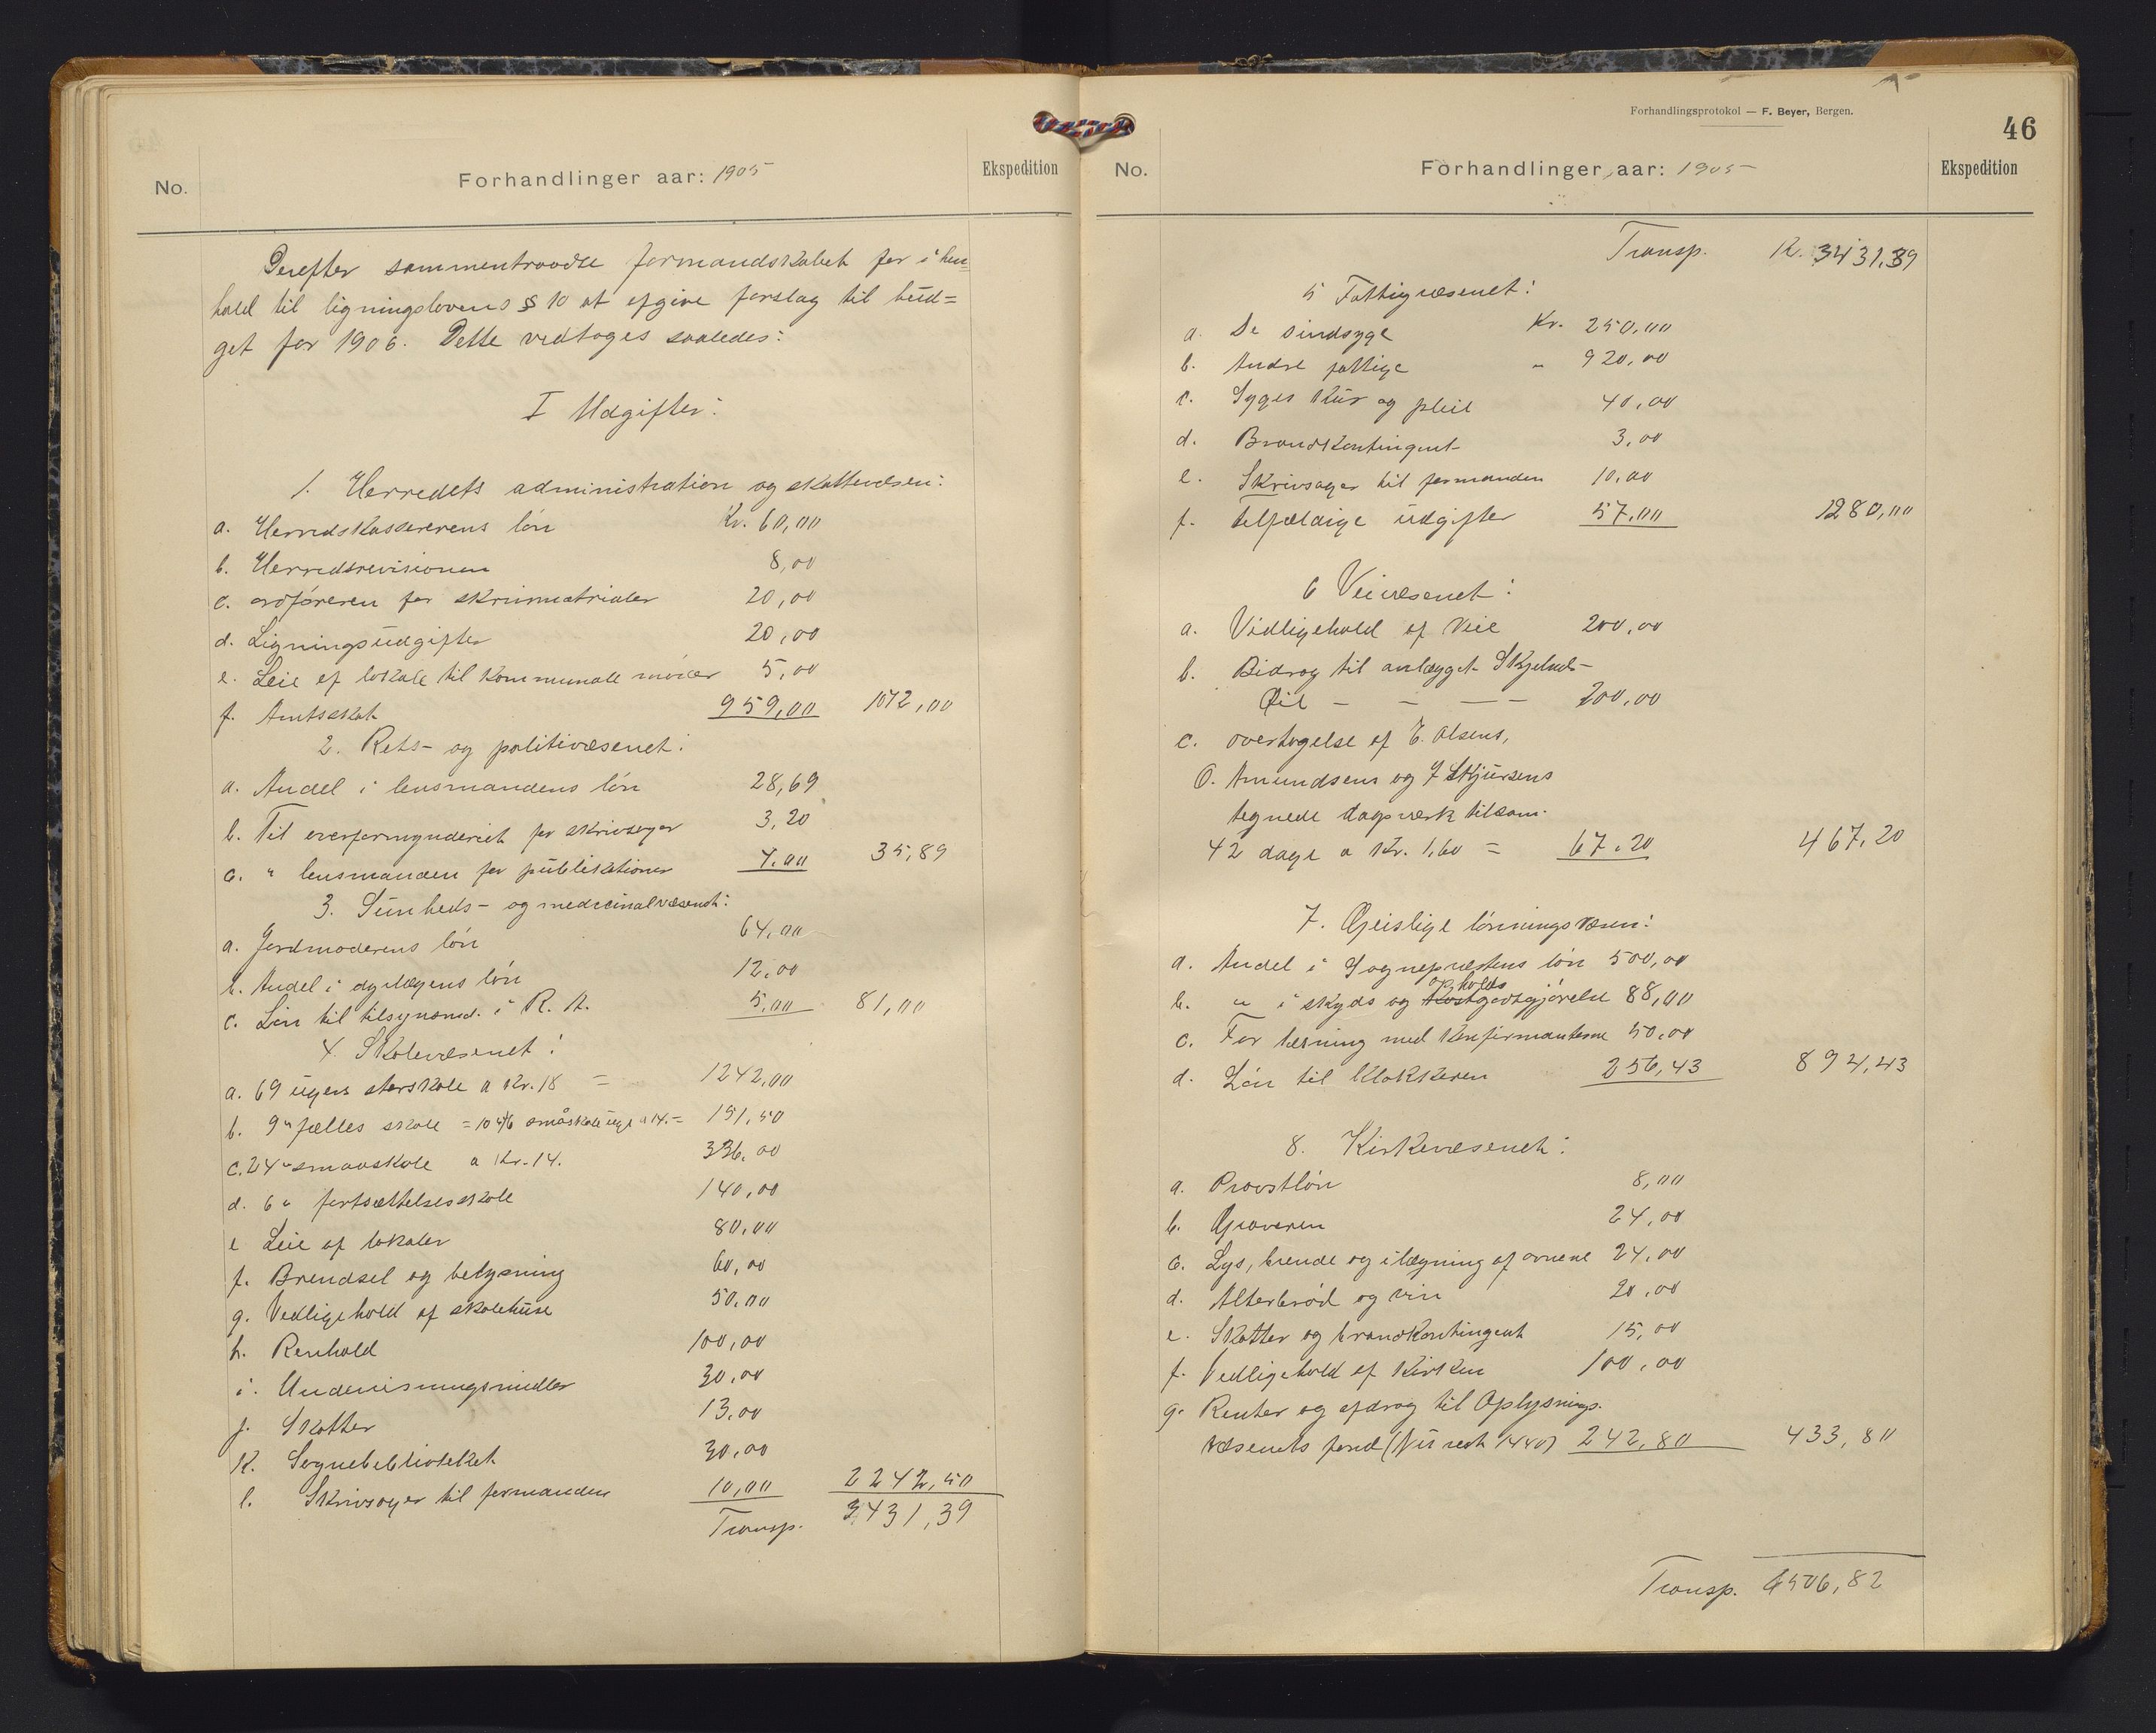 No.
Forhandlinger aar: 1905
Ekspedition
Derefter sammentraadte formandskabet for i hen=
hold til ligningslovens § 10 at afgive forslag til bud=
get for 1906. Dette vedtoges saaledes:
I Udgifter:
1. Herredets administration og skattevæsen:
a. Herredskassererens løn Kr. 60,00
b. Herredsrevisionen 8,00
c. ordføreren for skrivmatrialer 20,00
d. Ligningsudgifter 20,00
e. Leie af lokale til kommunale møder 5,00
f. Amtsskat 959,00 1072,00
2. Rets- og politivæsenet:
a. Andel i lensmandens løn 28,69
b. Til overformynderiet for skrivsager 3,20
c. " lensmanden for publikationer 4.00 35,89
3. Sunheds- og medicinalvæsenet:
a. Jordmoderens løn 64,00
b. Andel i dyrlægens løn 12,00
c. Løn til tilsynsmd. i R. A. 5,00 81,00
4. Skolevæsenet:
a. 69 ugers storskole a Kr. 18 = 1242,00
b. 9 " fælles skole = 10 4/6 småskoleuge a 14.= 151,50
c. 24 " smaaskole a Kr. 14. 336,00
d. 6 " fortsættelsesskole 140,00
e Leie af lokaler 80,00
f. Brendsel og belysning 60,00
g. Vedligehold af skolehuse 50,00
h. Renhold 100,00
i. Undervisningsmidler 30,00
j. Skatter 13,00
K. Sognebiblioteket 30,00
l. Skrivsager til formanden 10,00 2242,50
Transp. 3431,39
Forhandlingsprotokol — F. Beyer, Bergen.
46
No.
Forhandlinger aar: 1905
Ekspedition
Transp. K. 3431,39
5 Fattigvæsenet:
a. De sindsyge Kr. 250,00
b. Andre fattige " 920,00
c. Syges Kur og pleie 40,00
d. Brandkontingent 3,00
e. Skrivsager til formanden 10,00
f. tilfældige udgifter 57,00 1280,00
6 Veivæsenet:
a. Vidligehold af Veie 200,00
b. Bidrag til anlægget Skjelnes-
Øil – – – – 200,00
c. overtagelse af E. Olsens,
O. Amundsens og J Skjursens
tegnede dagsværk tilsam.
42 dage a Kr. 1,60 = 67,20 467,20
7. Geistlige lønningsvæsen:
a. Andel i Sogneprestens løn 500,00
b. " i skyds og Kost opholds godtgjørelse 88,00
c. For læsning med Konfirmanterne 50,00
d. Løn til Klokkeren 256,43 894,43
8. Kirkevæsenet:
a. Provstløn 8,00
b. Graveren 24,00
c. Lys, brende og ilægning af ovnene 24,00
d. Alterbrød og vin 20,00
e. Skatter og brandkontingent 15,00
f. Vedligehold af Kirken 100,00
g. Renter og afdrag til Oplysnings-
væsenets fond (Nu rest 1440) 242,80 433,80
Transp. 6506,82